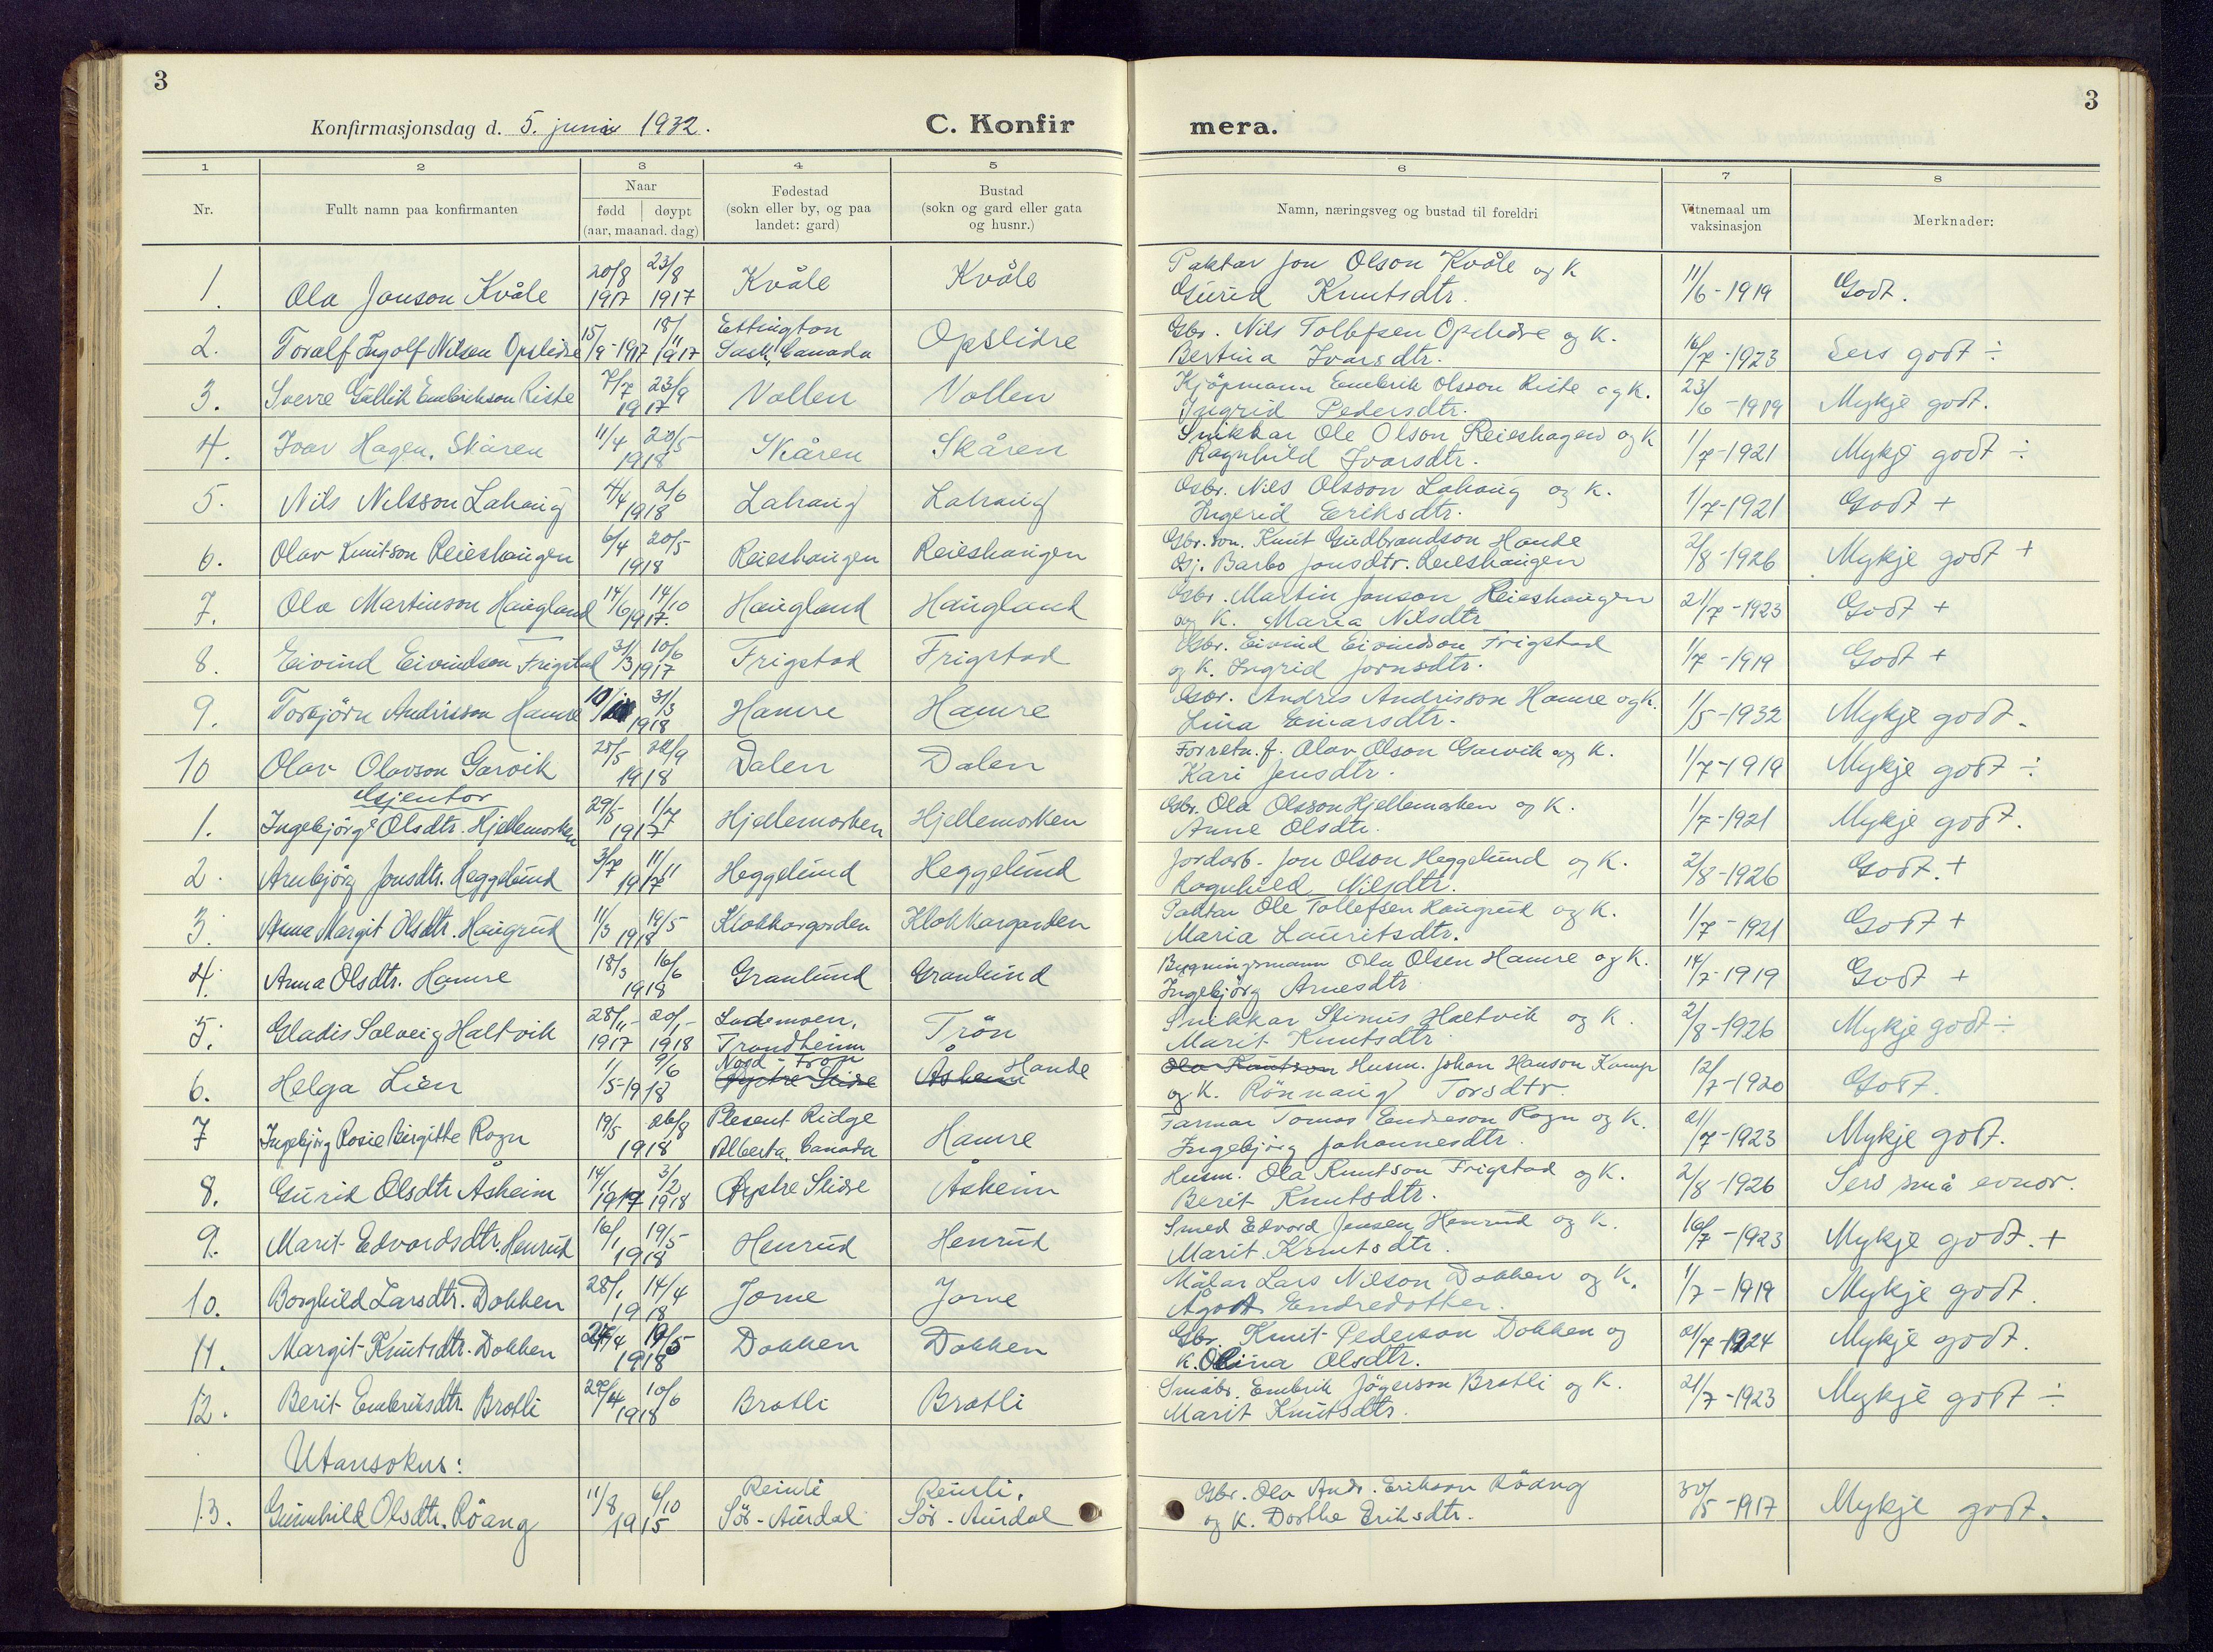 3
3
Konfirmasjonsdag d. 5. juni 1932.
C. Konfir
mera.
1 2 3 4 5 6 7 8
Nr.
Fullt namn paa konfirmanten
Naar
fødd døypt
(aar, maanad. dag)
Fødestad
(sokn eller by, og paa
landet: gard)
Bustad
(sokn og gard eller gata
og husnr.)
Namn, næringsveg og bustad til foreldri
Vitnemaal um
vaksinasjon
Merknader:
1. Ola Jonson Kvåle 20/8 1917 23/8 1917 Kvåle Kvåle
Paktar Jon Olson Kvåle og K
Gurid Knutsdtr. 11/6-1919 Godt.
2. Toralf Ingolf Nilsen Opslidre 15/9-1917 18/11 1917 Ettington
Sask. Canada Opslidre
Gbr. Nils Tollefsen Opslidre og K.
Bertina Ivarsdtr. 16/7-1923 Sers godt ÷
3. Sverre Gullik Embrikson Riste 7/7 23/9 1917 Vollen Vollen
Kjøpmann Embrik Olsson Riste og K.
Ingrid Pedersdtr. 23/6-1919 Mykje godt.
4. Ivar Hagen, Skåren 11/4 20/5 1918 Skåren Skåren
Snikkar Ole Olson Reieshagen og K
Ragnhild Ivarsdtr. 1/7-1921 Mykje godt ÷
5. Nils Nilsson Lahaug 4/4 2/6 1918 Lahaug Lahaug
Gbr. Nils Olsson Lahaug og K.
Ingerid Eriksdtr. 1/7-1921 Godt +
6. Olav Knutson Reieshaugen 6/4 20/5 1918 Reieshaugen Reieshaugen
Gbr. son. Knut Gudbrandson Hande
Gj. Barbo Jonsdtr. Reieshaugen 2/8-1926 Mykje godt +
7. Ola Martinson Haugland 14/6 14/10 1917. Haugland Haugland
Gbr. Martin Jonson Reieshaugen
og K. Maria Nilsdtr 21/7-1923 Godt +
8. Eivind Eivindson Frigstad 31/3 10/6 1917 Frigstad Frigstad
Gbr. Eivind Eivindson Frigstad
og K. Ingrid Jornsdtr. 1/7-1919 Godt +
9. Torbjörn Andrisson Hamre 10/ 31/3 1918 Hamre Hamre
Gbr. Andris Andrisson Hamre og K.
Lina Einarsdtr. 1/5-1932 Mykje godt.
10 Olav Olavson Garvik 25/5 22/9 1918 Dalen Dalen
Forretn.f. Olav Olson Garvik og K.
Kari Jensdtr. 1/7-1919 Mykje godt ÷
Gjentor
1. Ingebjörg Olsdtr. Hjellemorken 29/5 1/7 1917 Hjellemorken Hjellemorken
Gbr. Ola Olsson Hjellemorken og K.
Anne Olsdtr. 1/7-1921 Mykje godt.
2. Arnbjörg Jonsdtr. Heggelund 3/7 11/11 1917 Heggelund Heggelund
Jordarb. Jon Olson Heggelund og K.
Ragnhild Nilsdtr. 2/8-1926 Godt. +
3. Anna Margit Olsdtr. Haugrud 11/3 19/5 1918 Klokkargarden Klokkargarden
Paktar Ole Tollefsen Haugrud og K.
Maria Lauritsdtr. 1/7-1921 Godt +
4. Anna Olsdtr. Hamre 18/3 16/6 1918 Granlund Granlund
Bygningsmann Ola Olsen Hamre og K.
Ingebjörg Arnesdtr 14/7-1919 Godt +
5. Gladis Solveig Haltvik 28/11-1917 20/1-1918 Lademoen,
Trondheim Trön
Snikkar Stinus Haltvik og K.
Marit Knutsdtr 2/8-1926 Mykje godt ÷
6. Helga Lien 1/5-1918 9/6 Nord-Fron
Öystre Slidre Åsheim Hande
Ola Knutson Husm. Johan Hanson Kamp
og K. Rönnaug Torsdtr. 12/7-1920 Godt.
7 Ingebjörg Rosie Birgitte Rogn 19/5 26/8 1918 Plesent Ridge
Alberta. Canada Hamre
Farmar Tomas Endreson Rogn og K.
Ingebjörg Johannesdtr. 21/7-1923 Mykje godt.
8. Gurid Olsdtr Åsheim 14/11 1917 3/2 1918 Öystre Slidre Åsheim
Husm. Ola Knutson Frigstad og K.
Berit Knutsdtr. 2/8-1926 Sers små evnor.
9. Marit Edvardsdtr. Henrud 16/1 19/5 1918 Henrud Henrud
Smed Edvard Jensen Henrud og K.
Marit Knutsdtr. 16/7-1923 Mykje godt. +
10. Borghild Larsdtr. Dokken 28/1 14/4 1918 Jome Jome
Målar Lars Nilson Dokken og K.
Ågot Endredotter. 1/7-1919 Mykje godt.
11. Margit Knutsdtr. Dokken 27/4 19/5 1918 Dokken Dokken
Gbr. Knut Pederson Dokken og
K. Olina Olsdtr. 21/7-1924 Mykje godt.
12. Berit Embriksdtr. Brotli 27/4 10/6 1918 Brotli Brotli
Småbr. Embrik Jögerson Brotli og K.
Marit Knutsdtr. 21/7-1923 Mykje godt ÷
Utansokns:
13. Gunnhild Olsdtr. Röang 11/8 6/10 1915 Reinli
Sör-Aurdal Reinli,
Sör-Aurdal
Gbr. Ola Andr. Erikson Röang
og K. Dorthe Eriksdtr. 30/5-1917 Mykje godt.